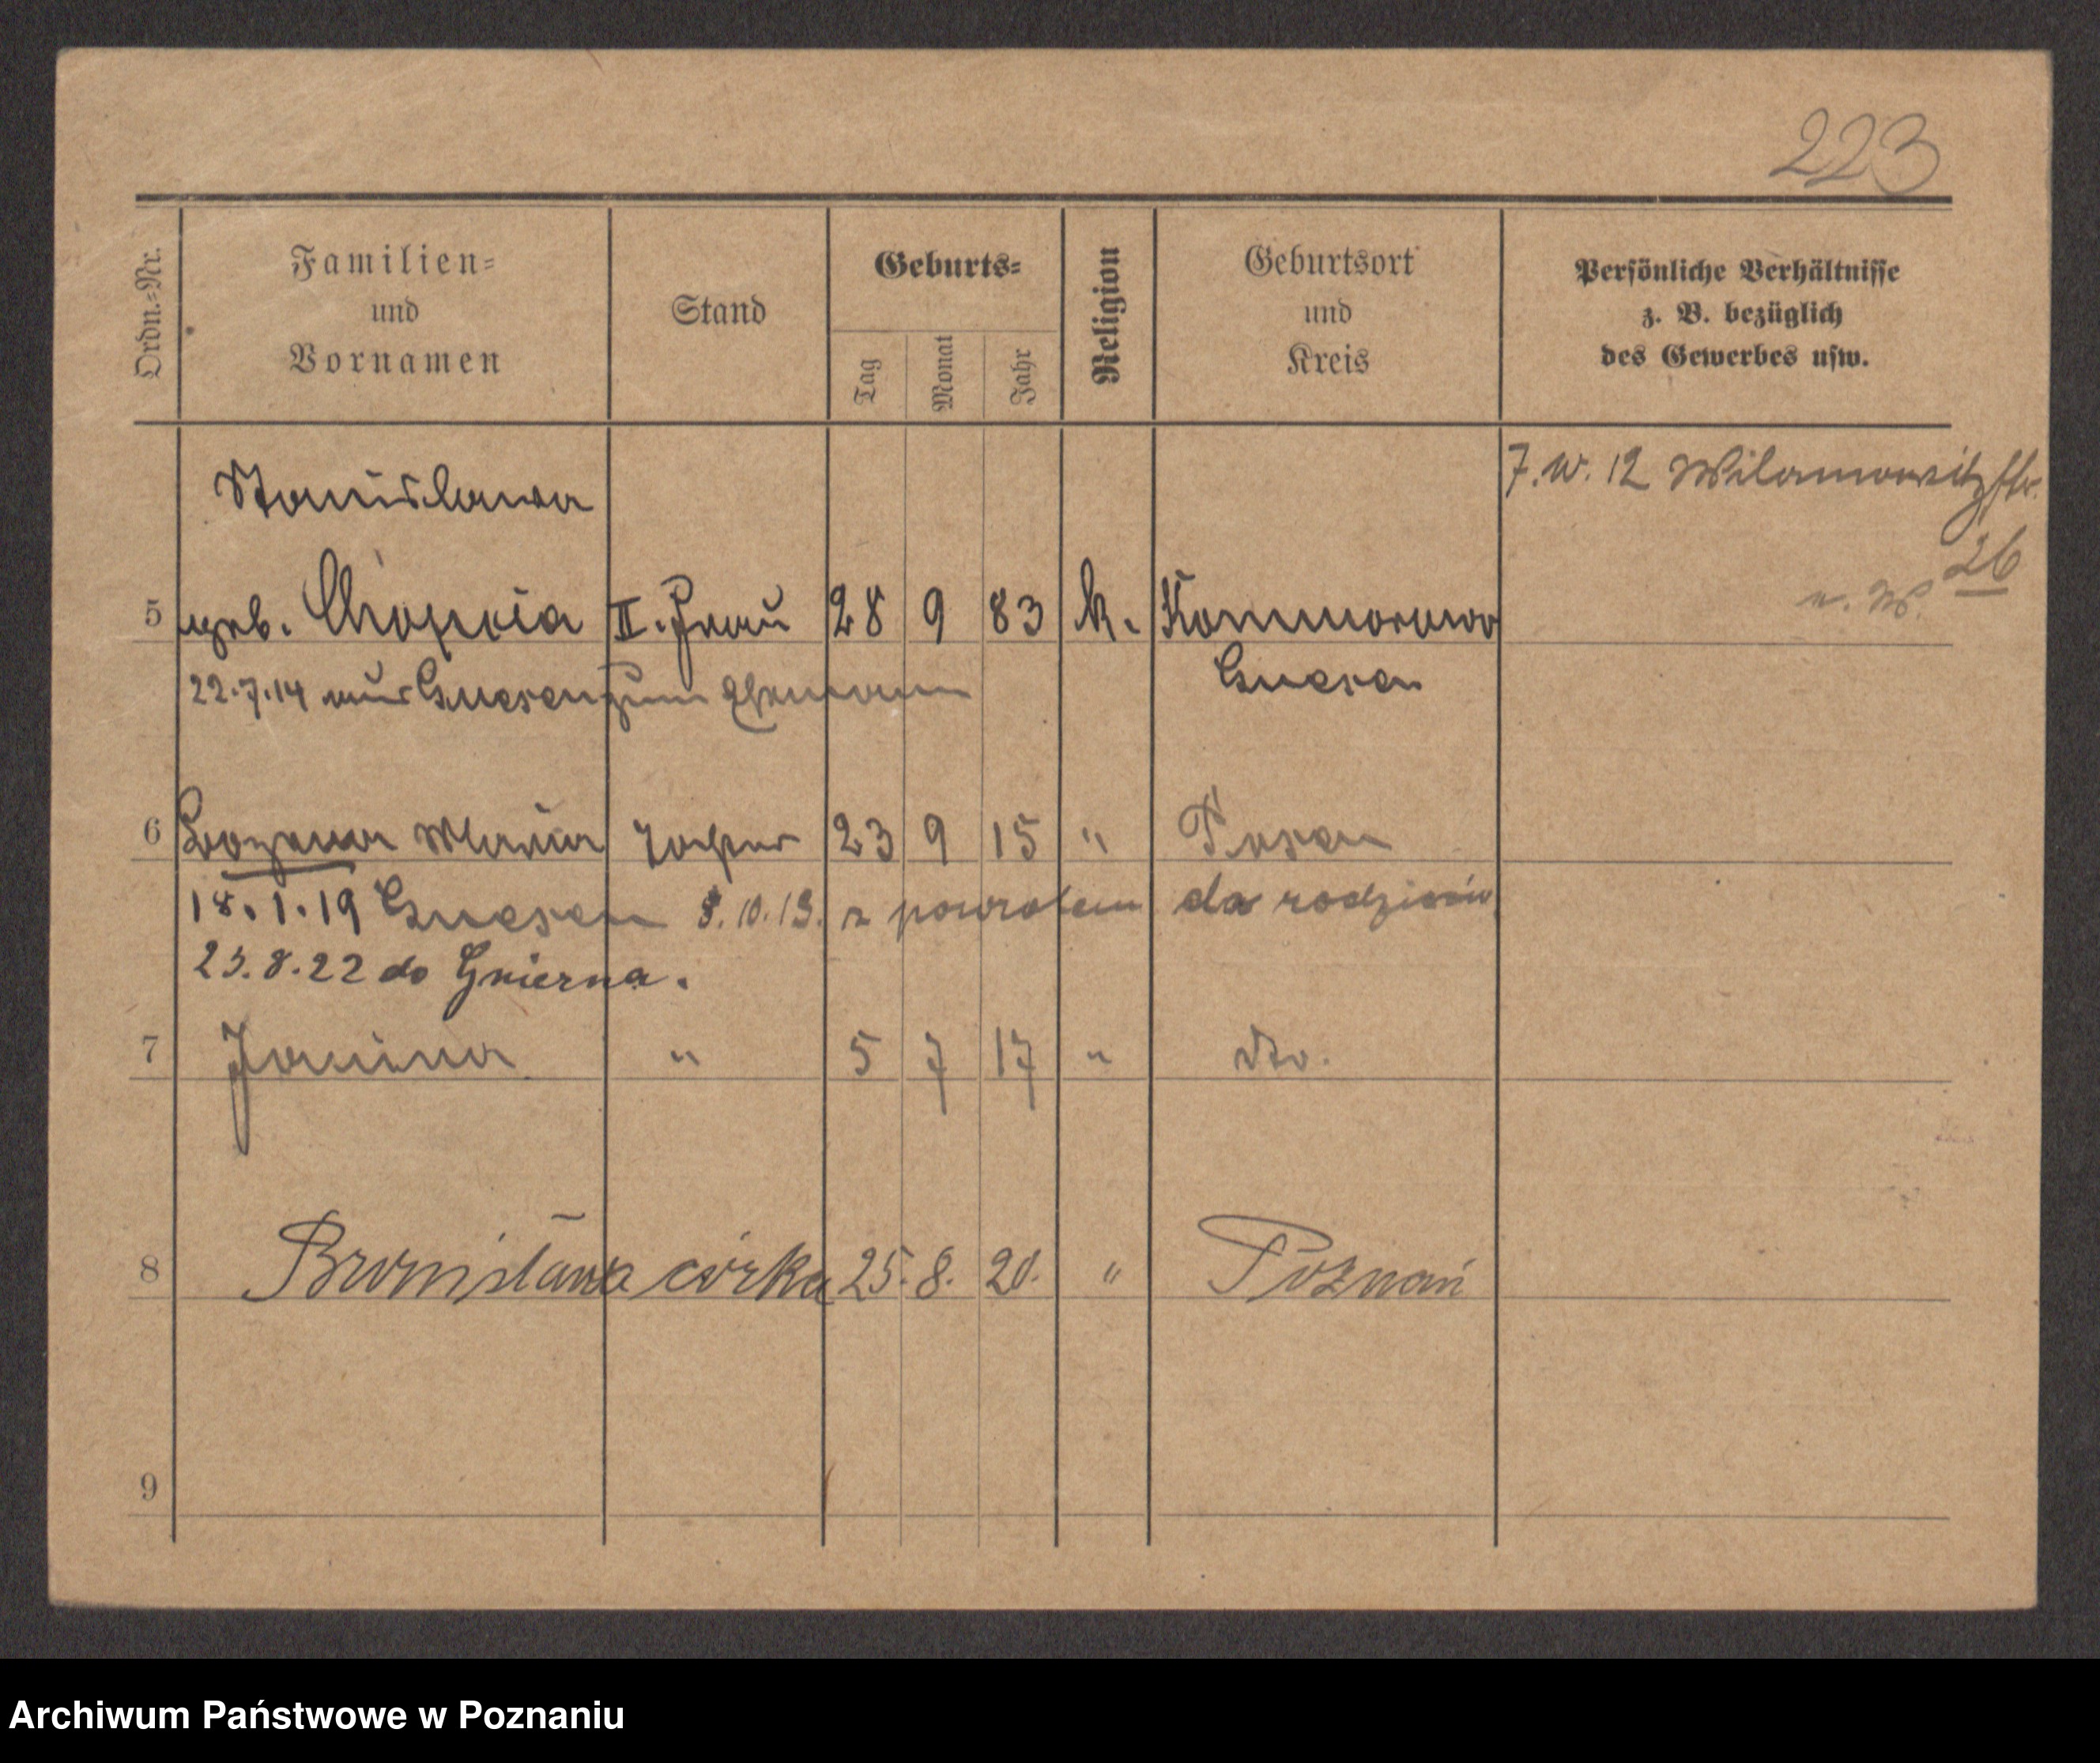 223
Ordn.-Nr.
Familien-
und
Vornamen
Stand
Geburts-
Tag
Monat
Jahr
Religion
Geburtsort
und
Kreis
Persönliche Verhältnisse
z. B. bezüglich
des Gewerbes usw.
Stanislawa
7. W. 12 Wilamowitzstr.
26
5 geb. II. Frau 28 9 83 k. Kommorowo
n. W.
22.7.14 nur Gnesen zum Ehemann
Gnesen
6 Bozena Maria Tochter 23 9 15 " Posen
18.1.19 Gnesen 10.19. z powrotem do rodziców
25.8.22 do Gniezna.
7 Janina " 5 7 17 " dto.
8 Bronisława córka 25. 8. 20. " Poznań
9
Archiwum Państwowe w Poznaniu